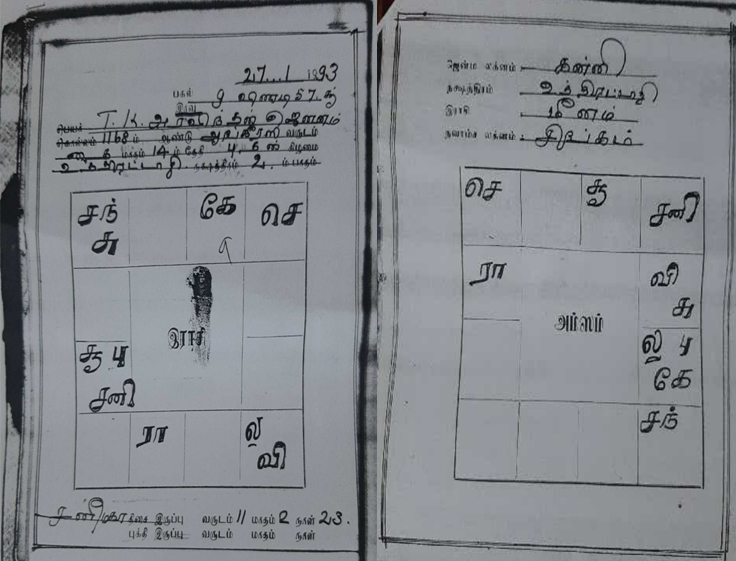 27..1 1993
பகல்
இரவு 9 வினாடி 57.
பெயர் T. K. அரவிந்தன் ஜெனனம்
கொல்லம் 1168 ம் ஆண்டு ஆங்கீரஸ வருடம்
தை மீ மாதம் 14 ம் தேதி புதன் கிழமை
உத்திரட்டாதி நக்ஷத்திரம் 2 ம் பாதம்
சந்
சு
கே
செ
சூ பு
சனி
இராசி
ரா
ல
வி
சனி மகா திசை இருப்பு வருடம் 11 மாதம் 2 நாள் 23.
புக்தி இருப்பு வருடம் மாதம் நாள்
ஜென்ம லக்னம் கன்னி
நக்ஷத்திரம் உத்திரட்டாதி
இராசி மீனம்
நவாம்ச லக்னம்
செ
சூ
சனி
ரா
வி
சு
அம்ஸம்
ல பு
கே
சந்